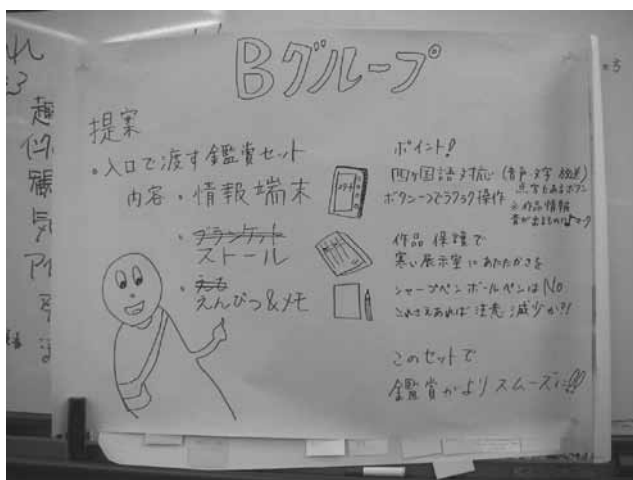 Bグループ
提案
・入口で渡す鑑賞セット
内容・情報端末
・ブランケット
ストール
・
えんぴつ&メモ
ポイント!
四ヶ国語対応(音声・文字 放送)
点字もあるボタン
ボタン一つでラクラク操作
作品情報
音が出るものは♪マーク
作品保護で
寒い展示室にあたたかさを
シャープペン ボールペンはNo
これさえあれば 注意 減少か?!
このセットで
鑑賞がよりスムーズに!!
趣
気